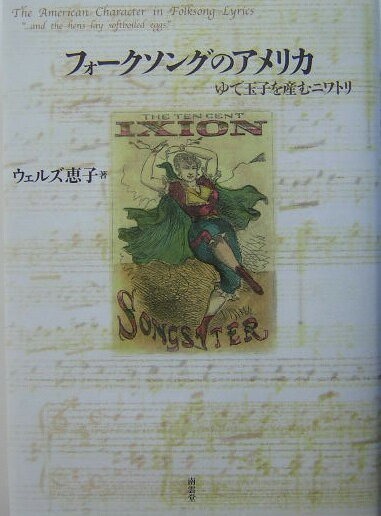 The American Character in Folksong Lyrics
"...and the hens lay softboiled eggs"
フォークソングのアメリカ
ゆで玉子を産むニワトリ
THE TEN CENT
IXION
ウェルズ恵子 著
SONGSTER
南雲堂